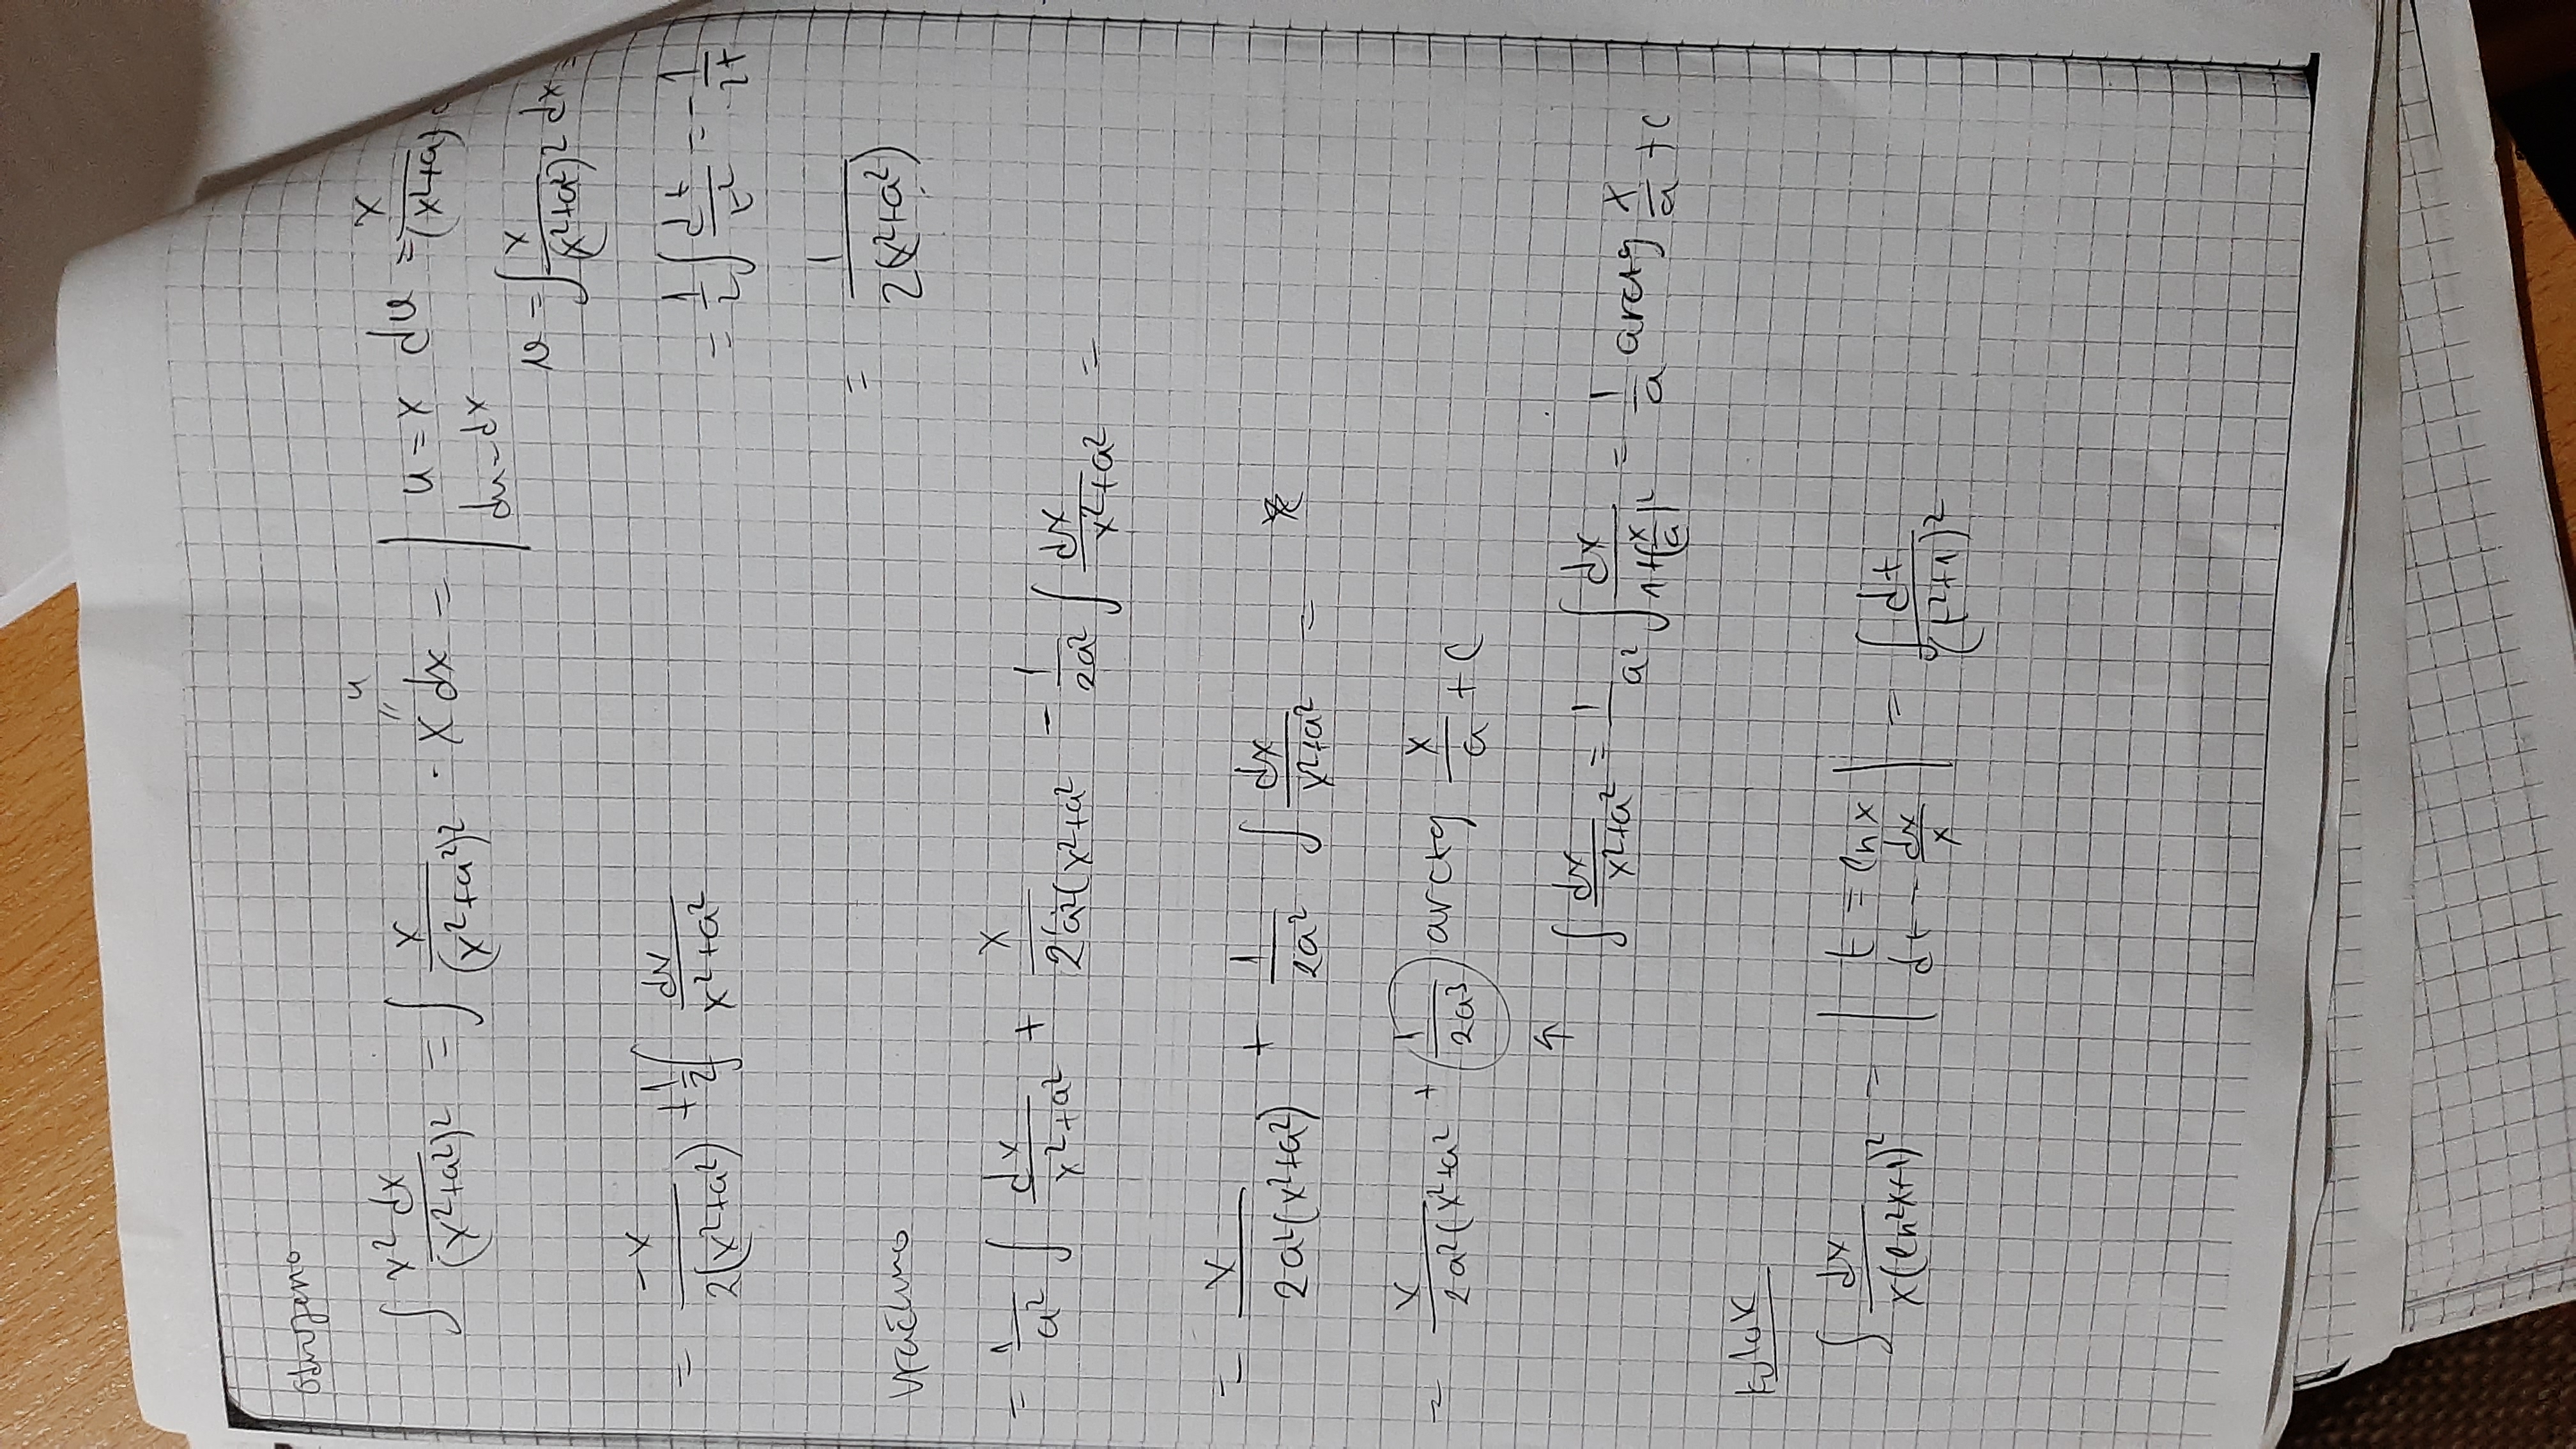 odvojeno
∫ x² dx / (x²+a²)² = ∫ x / (x²+a²)² · x dx = | u = x du = x / (x²+a)
u
du = dx
v = ∫ x / (x²+a²)² dx =
= -x / 2(x²+a²) + 1/2 ∫ dx / x²+a²
= 1/2 ∫ dt / t² = - 1/2t
= 1 / 2(x²+a²)
vraćamo
= 1/a² ∫ dx / x²+a² + x / 2a²(x²+a² - 1/2a² ∫ dx / x²+a² =
= x / 2a²(x²+a²) + 1/2a² ∫ dx / x²+a² =
= x / 2a²(x²+a² + 1/2a³ arctg x/a + C
↑ ∫ dx / x²+a² = 1/a² ∫ dx / 1+(x/a)² = 1/a arctg x/a + C
∫ dx / x(ln²x+1)² = | t = ln x | = ∫ dt / (t²+1)²
dt = dx/x